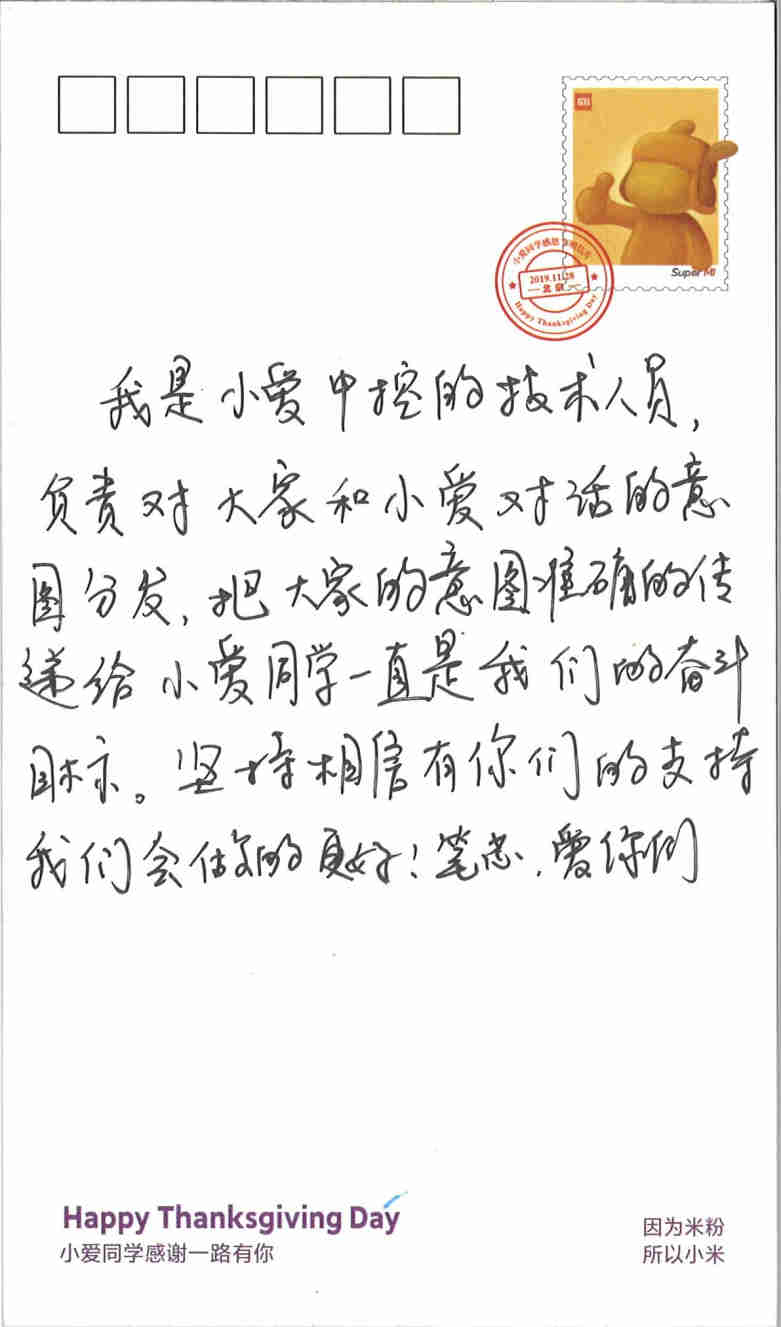 Super MI
小爱同学感恩
2019.11.28
北京
Happy Thanksgiving Day
我是小爱中控的技术人员,
负责对大家和小爱对话的意
图分发,把大家的意图准确的传
递给小爱同学一直是我们的奋斗
目标。坚持相信有你们的支持
我们会做的更好!笔芯,爱你们
Happy Thanksgiving Day
小爱同学感谢一路有你
因为米粉
所以小米